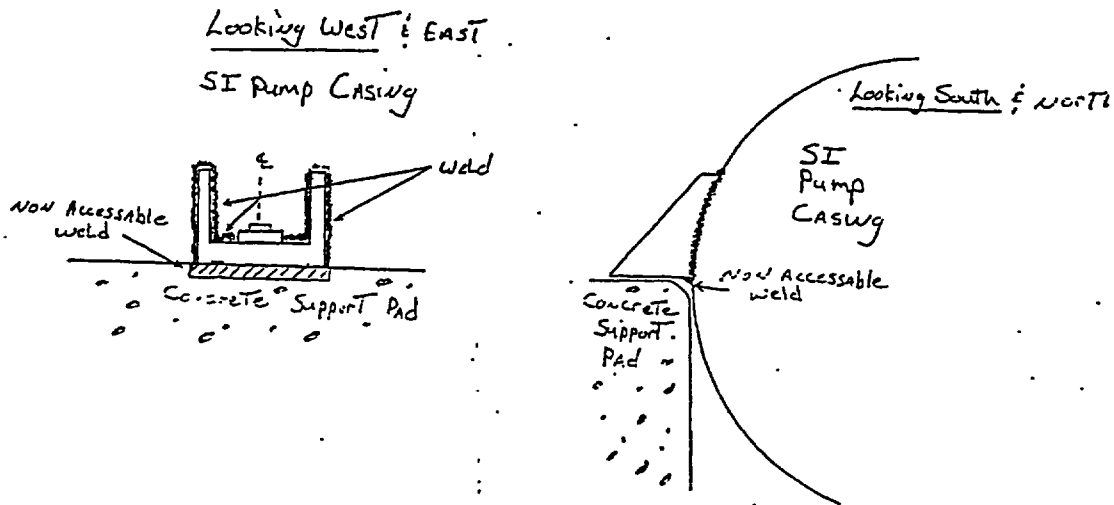 Looking West & EAST
SI Pump Casing
℄
Weld
NON Accessable
Weld
Concrete Support Pad
Looking South & North
SI
Pump
Casing
NON Accessable
Weld
Concrete
Support
Pad